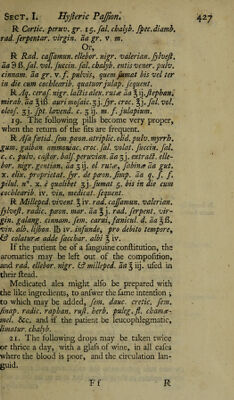 SECT. I. Hyſteric Paſſion. 427
R Cortic. peruv. gr. 15. ſal. chalyb. ſpec. diamb.
rad. ſerpentar. virgin. āa gr. v. m.
Or,
R Rad. caſſamun. ellebor. nigr. valerian. ſylveſt.
āa ℈ß. ſal. vol. ſuccin. ſal. chalyb. ent. vener. pulv.
cinnam. āa gr. v. f. pulvis, quem ſumat bis vel ter
in die cum cochlearib. quatuor julap. ſequent.
R Aq. ceraſ. nigr. lactis alex. rutæ āa ℥ij. ſtephan.
mirab. āa ℥iß auri moſaic. ʒj. ſyr. croc. ℥j. ſal. vol.
oleoſ. ʒj. ſpt. lavend. c. ʒij. m. f. julapium.
19. The following pills become very proper,
when the return of the fits are frequent.
R Aſſa fœtid. ſem. pæon. atriplic. olid. pulv. myrrh.
gum. galban. ammoniac. croc. ſal. volat. ſuccin. ſal.
c. c. pulv. caſtor. balſ. peruvian. āa ʒj. extract. elle-
bor. nigr. gentian. āa ʒij. ol. rutæ, ſabinæ āa gut.
x. elix. proprietat. ſyr. de pæon. ſimp. āa q. ſ. f.
pilul. nº x. è qualibet ʒj. ſumat 5. bis in die cum
cochlearib. iv. vin. medicat. ſequent.
R Milleped. vivent ℥iv. rad. caſſamun. valerian.
ſylveſt. radic. pæon. mar. āa ℥j. rad. ſerpent. vir-
gin. galang. cinnam. ſem. carui, fœnicul. d. āa ℥ß.
vin. alb. liſbon. ℔iv. infunde, pro debito tempore,
& colaturæ adde ſacchar. albi ℥iv.
If the patient be of a ſanguine conſtitution, the
aromatics may be left out of the compoſition,
and rad. ellebor. nigr. & milleped. āa ℥iij. uſed in
their ſtead.
Medicated ales might alſo be prepared with
the like ingredients, to anſwer the ſame intention;
to which may be added, ſem. dauc. cretic. ſem.
ſinap. radic. raphan. ruſt. herb. puleg. fl. chamæ-
mel. &c. and if the patient be leucophlegmatic,
limatur. chalyb.
21. The following drops may be taken twice
or thrice a day, with a glaſs of wine, in all caſes
where the blood is poor, and the circulation lan-
guid.
F f R